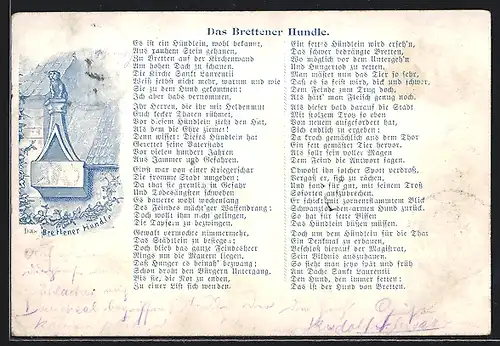 Das Brettener Hundle.
Es ist ein Hündlein, wohl bekannt,
Aus rauhem Stein gehauen,
Zu Bretten auf der Kirchenwand
Am hohen Dach zu schauen.
Die Kirche Sankt Laurentii
Weiß selbst nicht mehr, warum und wie
Sie zu dem Hund gekommen:
Ich aber habs vernommen.
Ihr Herren, die ihr mit Heldenmut
Euch kecker Thaten rühmet,
Vor diesem Hündlein zieht den Hut,
Als dem die Ehre ziemet!
Denn wisset: Dieses Hündlein hat
Gerettet seine Vaterstadt
Vor vielen hundert Jahren
Aus Jammer und Gefahren.
Einst war von einer Kriegerschar
Die fromme Stadt umgeben:
Da that sie greulich in Gefahr
Und Todesängsten schweben
Es dauerte wohl wochenlang
Des Feindes mächt'ger Waffendrang:
Doch wollt ihm nicht gelingen,
Die Tapfern zu bezwingen.
Gewalt vermochte nimmermehr,
Das Städtlein zu besiegen:
Doch blieb das ganze Feindesheer
Rings um die Mauern liegen.
Daß Hunger es beinah' bezwang:
Schon droht den Bürgern Untergang.
Bis sie, die Not zu enden,
Zu einer List sich wenden.
Ein fettes Hündlein wird erseh'n,
Das schwer bedrängte Bretten,
Wo möglich vor dem Untergeh'n
Und Hungertod zu retten.
Man mästet nun das Tier so sehr,
Daß es so feist wird, dick und schwer,
Dem Feinde zum Trug doch,
Als hätt' man Fleisch genug noch.
Als dieser bald darauf die Stadt
Mit stolzem Trotz so eben
Von neuem aufgefordert hat,
Sich endlich zu ergeben:
Da kroch gemächlich aus dem Thor
Ein fett gemäster Tier hervor.
Als sollt sein voller Magen
Dem Feinde die Antwort sagen.
Obwohl ihn solcher Spott verdroß,
Vergaß er, sich zu rächen,
Und fand für gut, mit seinem Troß
Sofortens aufzubrechen.
Er schickt mit zornentflammtem Blick
Schwanzlos den armen Hund zurück.
So hat für fette Bissen
Das Hündlein büßen müssen.
Doch um dem Hündlein für die That
Ein Denkmal zu erbauen,
Beschloß hierauf der Magistrat,
Sein Bildnis auszuhauen.
So sieht man jetzo spät und früh
Am Dache Sankt Laurentii
Den Hund, den immer fetten:
Das ist der Hund von Bretten.
Das Brettener Hundle